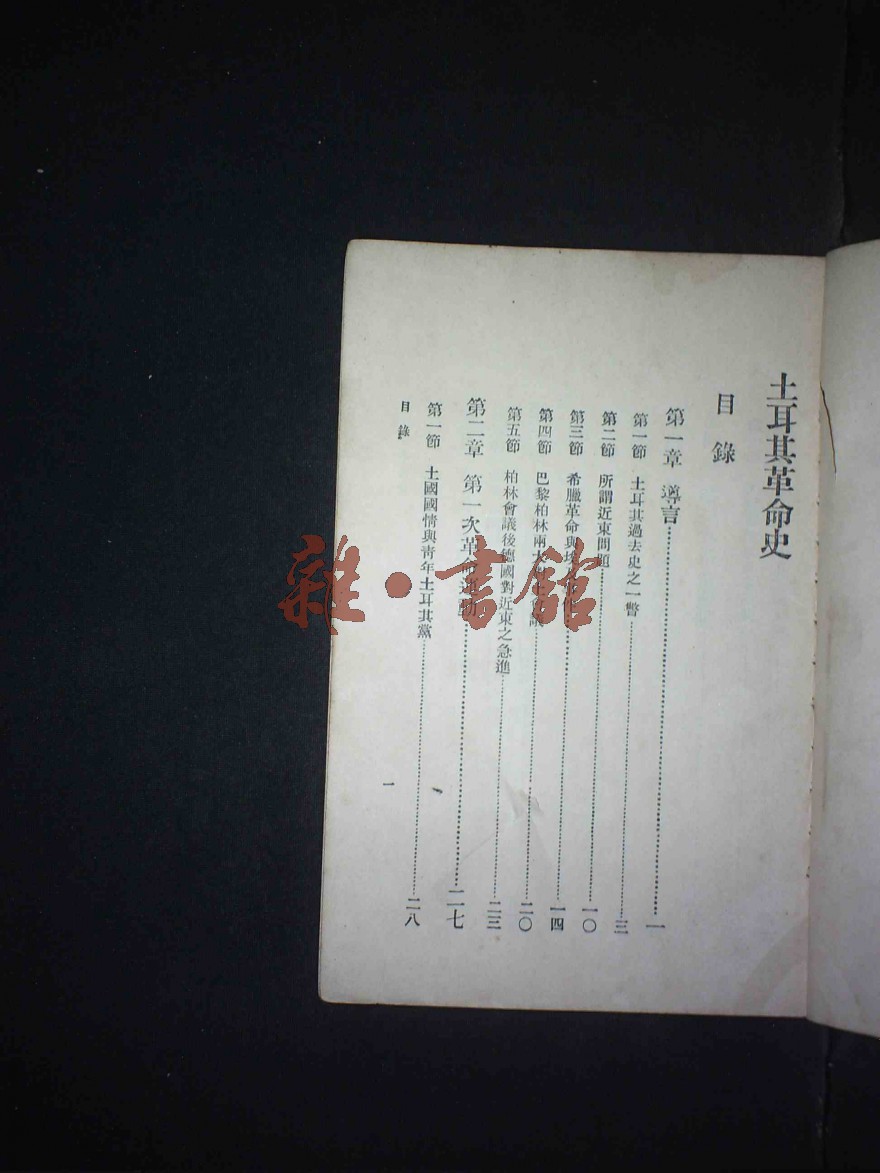 土耳其革命史
目錄
第一章 導言⋯⋯一
第一節 土耳其過去史之一瞥⋯⋯三
第二節 所謂近東問題⋯⋯一〇
第三節 希臘革命與⋯⋯一四
第四節 巴黎柏林兩⋯⋯二〇
第五節 柏林會議後德國對近東之急進⋯⋯二三
第二章 第一次革命運動⋯⋯二七
第一節 土國國情與青年土耳其黨⋯⋯二八
目錄
一
雜·書館